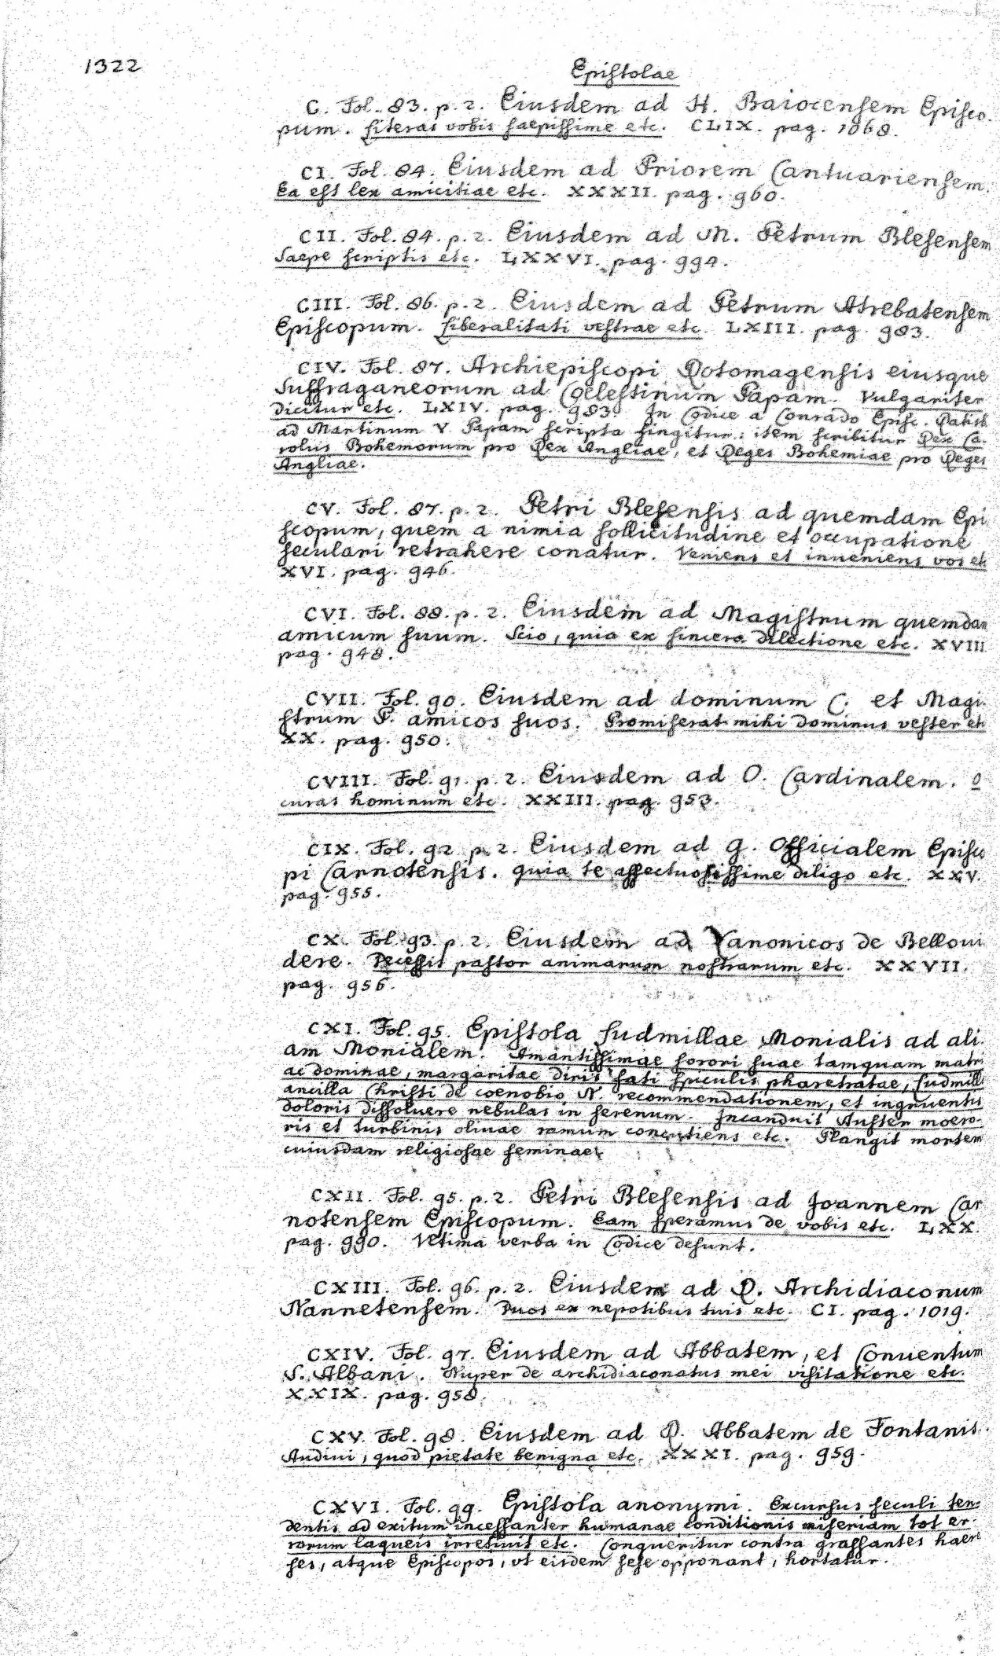 1322
Epistolae
C. Fol. 83. p. 2. Eiusdem ad H. Baiocensem Episco-
pum. Literas vobis saepissime etc. CLIX. pag. 1068.
CI. Fol. 84. Eiusdem ad Priorem Cantuariensem.
Ea est lex amicitiae etc. XXXII. pag. 960.
CII. Fol. 84. p. 2. Eiusdem ad M. Petrum Blesensem
Saepe scriptis etc. LXXVI. pag. 994.
CIII. Fol. 86. p. 2. Eiusdem ad Petrum Atrebatensem
Episcopum. Liberalitati vestrae etc. LXIII. pag. 983.
CIV. Fol. 87. Archiepiscopi Rotomagensis eiusque
Suffraganeorum ad Coelestinum Papam. Vulgariter
dicitur etc. LXIV. pag. 983. In Codice a Conrado Episc. Ratisb
ad Martinum V. Papam scripta fingitur: item scribitur Rex Ca-
rolus Bohemorum pro Rex Angliae, et Reges Bohemiae pro Reges
Angliae.
CV. Fol. 87. p. 2. Petri Blesensis ad quemdam Epi
scopum, quem a nimia sollicitudine et occupatione
seculari retrahere conatur. Veniens et inveniens vos etc
XVI. pag. 946.
CVI. Fol. 88. p. 2. Eiusdem ad Magistrum quemdam
amicum suum. Scio, quia ex sincera dilectione etc. XVIII
pag. 948.
CVII. Fol. 90. Eiusdem ad dominum C. et Magi-
strum P. amicos suos. Promiserat mihi dominus vester etc
XX. pag. 950.
CVIII. Fol. 91. p. 2. Eiusdem ad O. Cardinalem. O
curas hominum etc. XXIII. pag. 953.
CIX. Fol. 92. p. 2. Eiusdem ad G. Officialem Episco
pi Carnotensis. quia te affectuosissime diligo etc. XXV.
pag. 955.
CX. Fol. 93. p. 2. Eiusdem ad Canonicos de Bellovi
dere. Recessit pastor animarum nostrarum etc. XXVII.
pag. 956.
CXI. Fol. 95. Epistola Ludmillae Monialis ad ali-
am Monialem. Amantissimae sorori suae tamquam matri
ac dominae, margaritae diris fati spiculis pharetratae, Ludmilla
ancilla Christi de coenobio N. recommendationem, et ingruentis
doloris dissoluere nebulas in serenum. Incanduit Auster moero-
ris et turbinis olivae ramum concutiens etc. Plangit mortem
cuiusdam religiosae feminae.
CXII. Fol. 95. p. 2. Petri Blesensis ad Joannem Car
notensem Episcopum. Eam speramus de vobis etc. LXX.
pag. 990. Vltima verba in Codice desunt.
CXIII. Fol. 96. p. 2. Eiusdem ad R. Archidiaconum
Nannetensem. Duos ex nepotibus tuis etc. CI. pag. 1019.
CXIV. Fol. 97. Eiusdem ad Abbatem, et Conventum
S. Albani. Nuper de archidiaconatus mei visitatione etc.
XXIX. pag. 958.
CXV. Fol. 98. Eiusdem ad R. Abbatem de Fontanis.
Audiui, quod pietate benigna etc. XXXI. pag. 959.
CXVI. Fol. 99. Epistola anonymi. Excursus seculi ten-
dentis ad exitum incessanter humanae conditionis miseriam tot er-
rorum laqueis irretivit etc. Conqueritur contra grassantes haere
ses, atque Episcopos, vt eisdem sese opponant, hortatur.